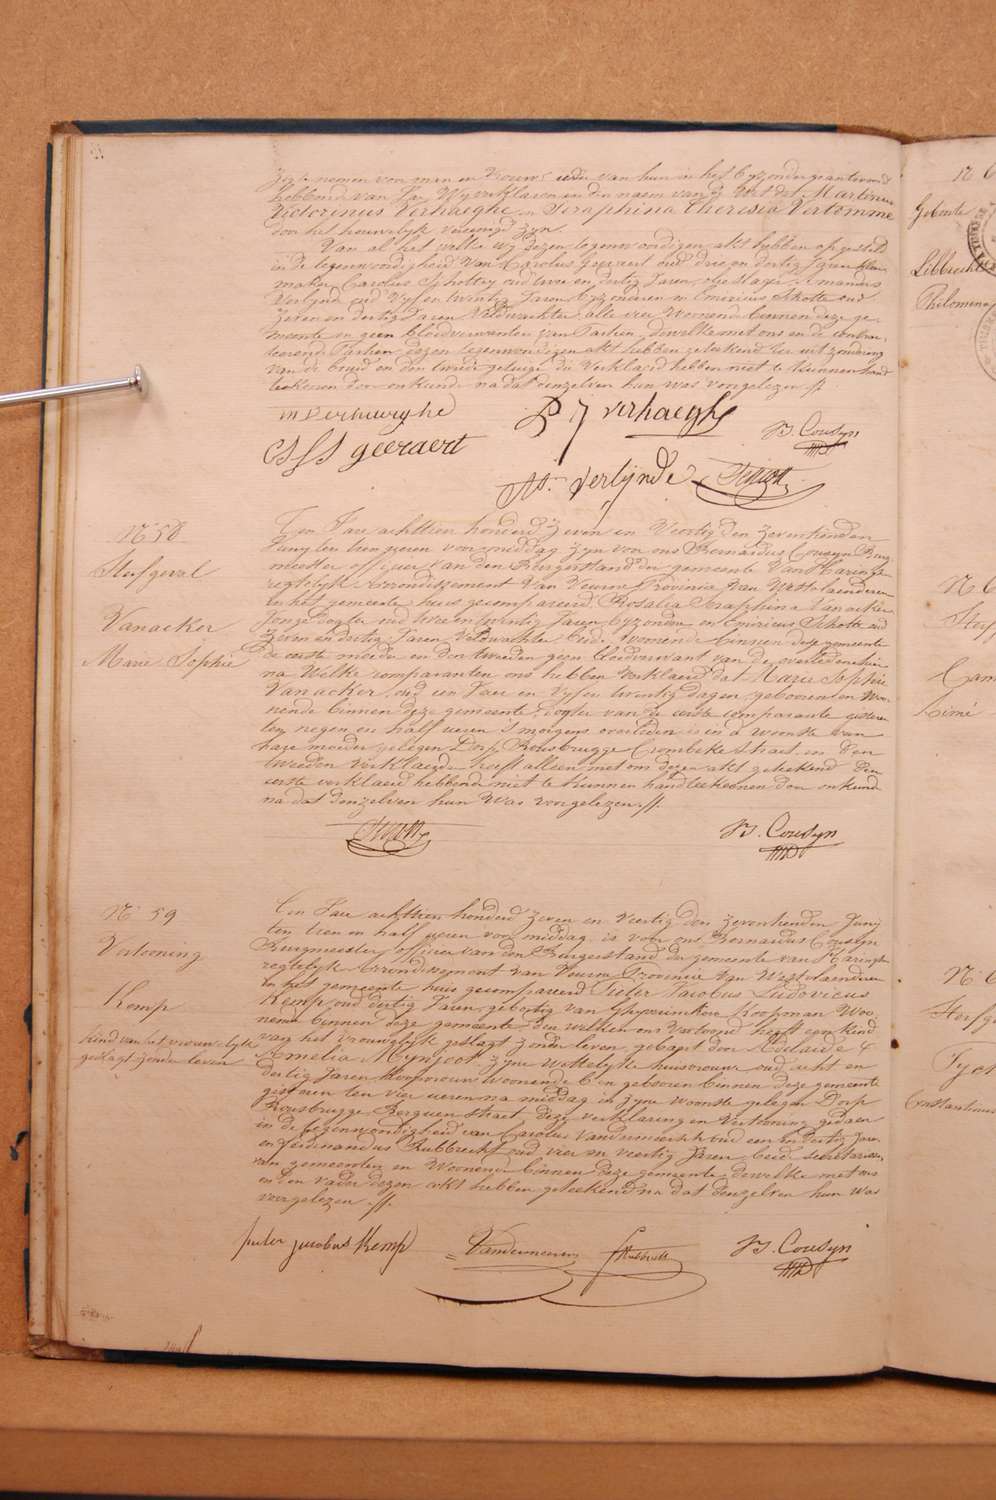 te nemen voor man en vrouw ieder van hun in het byzonder geantwoord
hebbende van Ja, Wy verklaeren in den naem van de Wet dat Martinus
Victorinus Verhaeghe en Seraphina Theresia Vertomme
door het houwelyk vereenigd zyn
Van al het welke wy dezen tegenwoordigen akt hebben opgesteld
in de tegenwoordigheid van Carolus Geeraert oud drie en dertig Jaren kleer
maker, Carolus oud twee en dertig Jaren, Amandus
Verlynde oud vyf en twintig Jaren byzonderen en Emiricus Schotte oud
zeven en dertig Jaren Veldwachter, alle vier Woonende binnen deze ge,
meente en geen bloedverwanten van Partien, dewelke met ons en de contrac,
teerende Partien dezen tegenwoordigen akt hebben geteekend ter uitzondering
van de bruid en den tweede getuige die verklaerd hebben niet te kunnen hand
teekenen door onkunde na dat denzelven hun was voorgelezen ./.
m verhaeghe
P J verhaeghe
B. Cousyn
geeraert
Verlynde
N° 58
Sterfgeval
Vanacker
Marie Sophie
Ten Jare achttien honderd Zeven en Veertig den Zeventienden
Juny ten tien ueren voor middag zyn voor ons Bernardus Cousyn Burg
meester officier van den Burgerstand der gemeente van Haringe
regtelyk Arrondissement van Veurne Provincie van Westvlaenderen
in het gemeente huis gecompareerd Rosalia Seraphina Vanacker
Jonge dogter oud twee en twintig Jaren byzondere en Emiricus Schotte oud
Zeven en dertig Jaren Veldwachter, beide woonende binnen deze gemeente
de eerste moeder en den tweeden geen bloedverwant van de overledene hier
na Welke comparanten ons hebben verklaerd dat Marie Sophie
Vanacker, oud een Jaer en vyf en twintig dagen, geboren en Woo,
nende binnen deze gemeente, dogter van de eerste comparante gisteren
ten negen en half ueren 's morgens overleden is in d' woonste van
haere moeder gelegen Dorp Rousbrugge Crombeke Straet, en den
tweeden verklaerder heeft alleen met ons dezen akt geteekend den
eerste verklaerd hebbende niet te kunnen handteekenen door onkunde
na dat denzelven hun was voorgelezen ./.
B. Cousyn
N° 59
Vertooning
Kemp
kind van het vrouwelyke
geslagt zonder leven
Ten Jare achttien honderd Zeven en Veertig den Zeventienden Juny
ten tien en half ueren voor middag is voor ons Bernardus Cousyn
Burgmeester officier van den Burgerstand der gemeente van Haringhe
regtelyk Arrondissement van Veurne Provincie van Westvlaenderen
in het gemeente huis gecompareerd Pieter Jacobus Ludovicus
Kemp oud dertig Jaren, geboortig van Ghyverinckove Koopman Woo
nende binnen deze gemeente, den welken ons vertoond heeft een kind
van het vrouwelyk geslagt zonder leven, gebaert door Adelaide
Amelia Mynjoot zyne wettelyke huisvrouw oud acht en
dertig Jaren koopvrouw woonende en geboren binnen deze gemeente
gisteren ten vier ueren na middag in zyne woonste gelegen Dorp
Rousbrugge Berguen straet, deze verklaring en Vertooning gedaen
in de tegenwoordigheid van Carolus Vandermeersch oud een en dertig Jaren
en Ferdinandus Rubbrecht oud vier en veertig Jaren beide secretarissen
van gemeenten en Woonende binnen deze gemeente dewelke met ons
en den vader dezen akt hebben geteekend na dat denzelven hun was
voorgelezen ./.
pieter jacobus Kemp
Vandermeersch
Rubbrecht
B. Cousyn
Geboorte
Philomena
Cam
Aimé